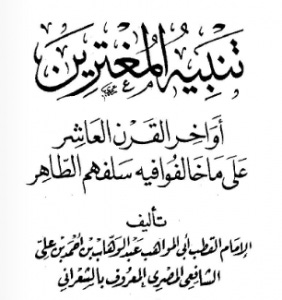 تنبيه المغترين
أواخر القرن العاشر
على ما خالفوا فيه سلفهم الطاهر
تأليف
الإمام القطب أبي المواهب عبد الوهاب بن أحمد بن علي
الشافعي المصري المعروف بالشعراني